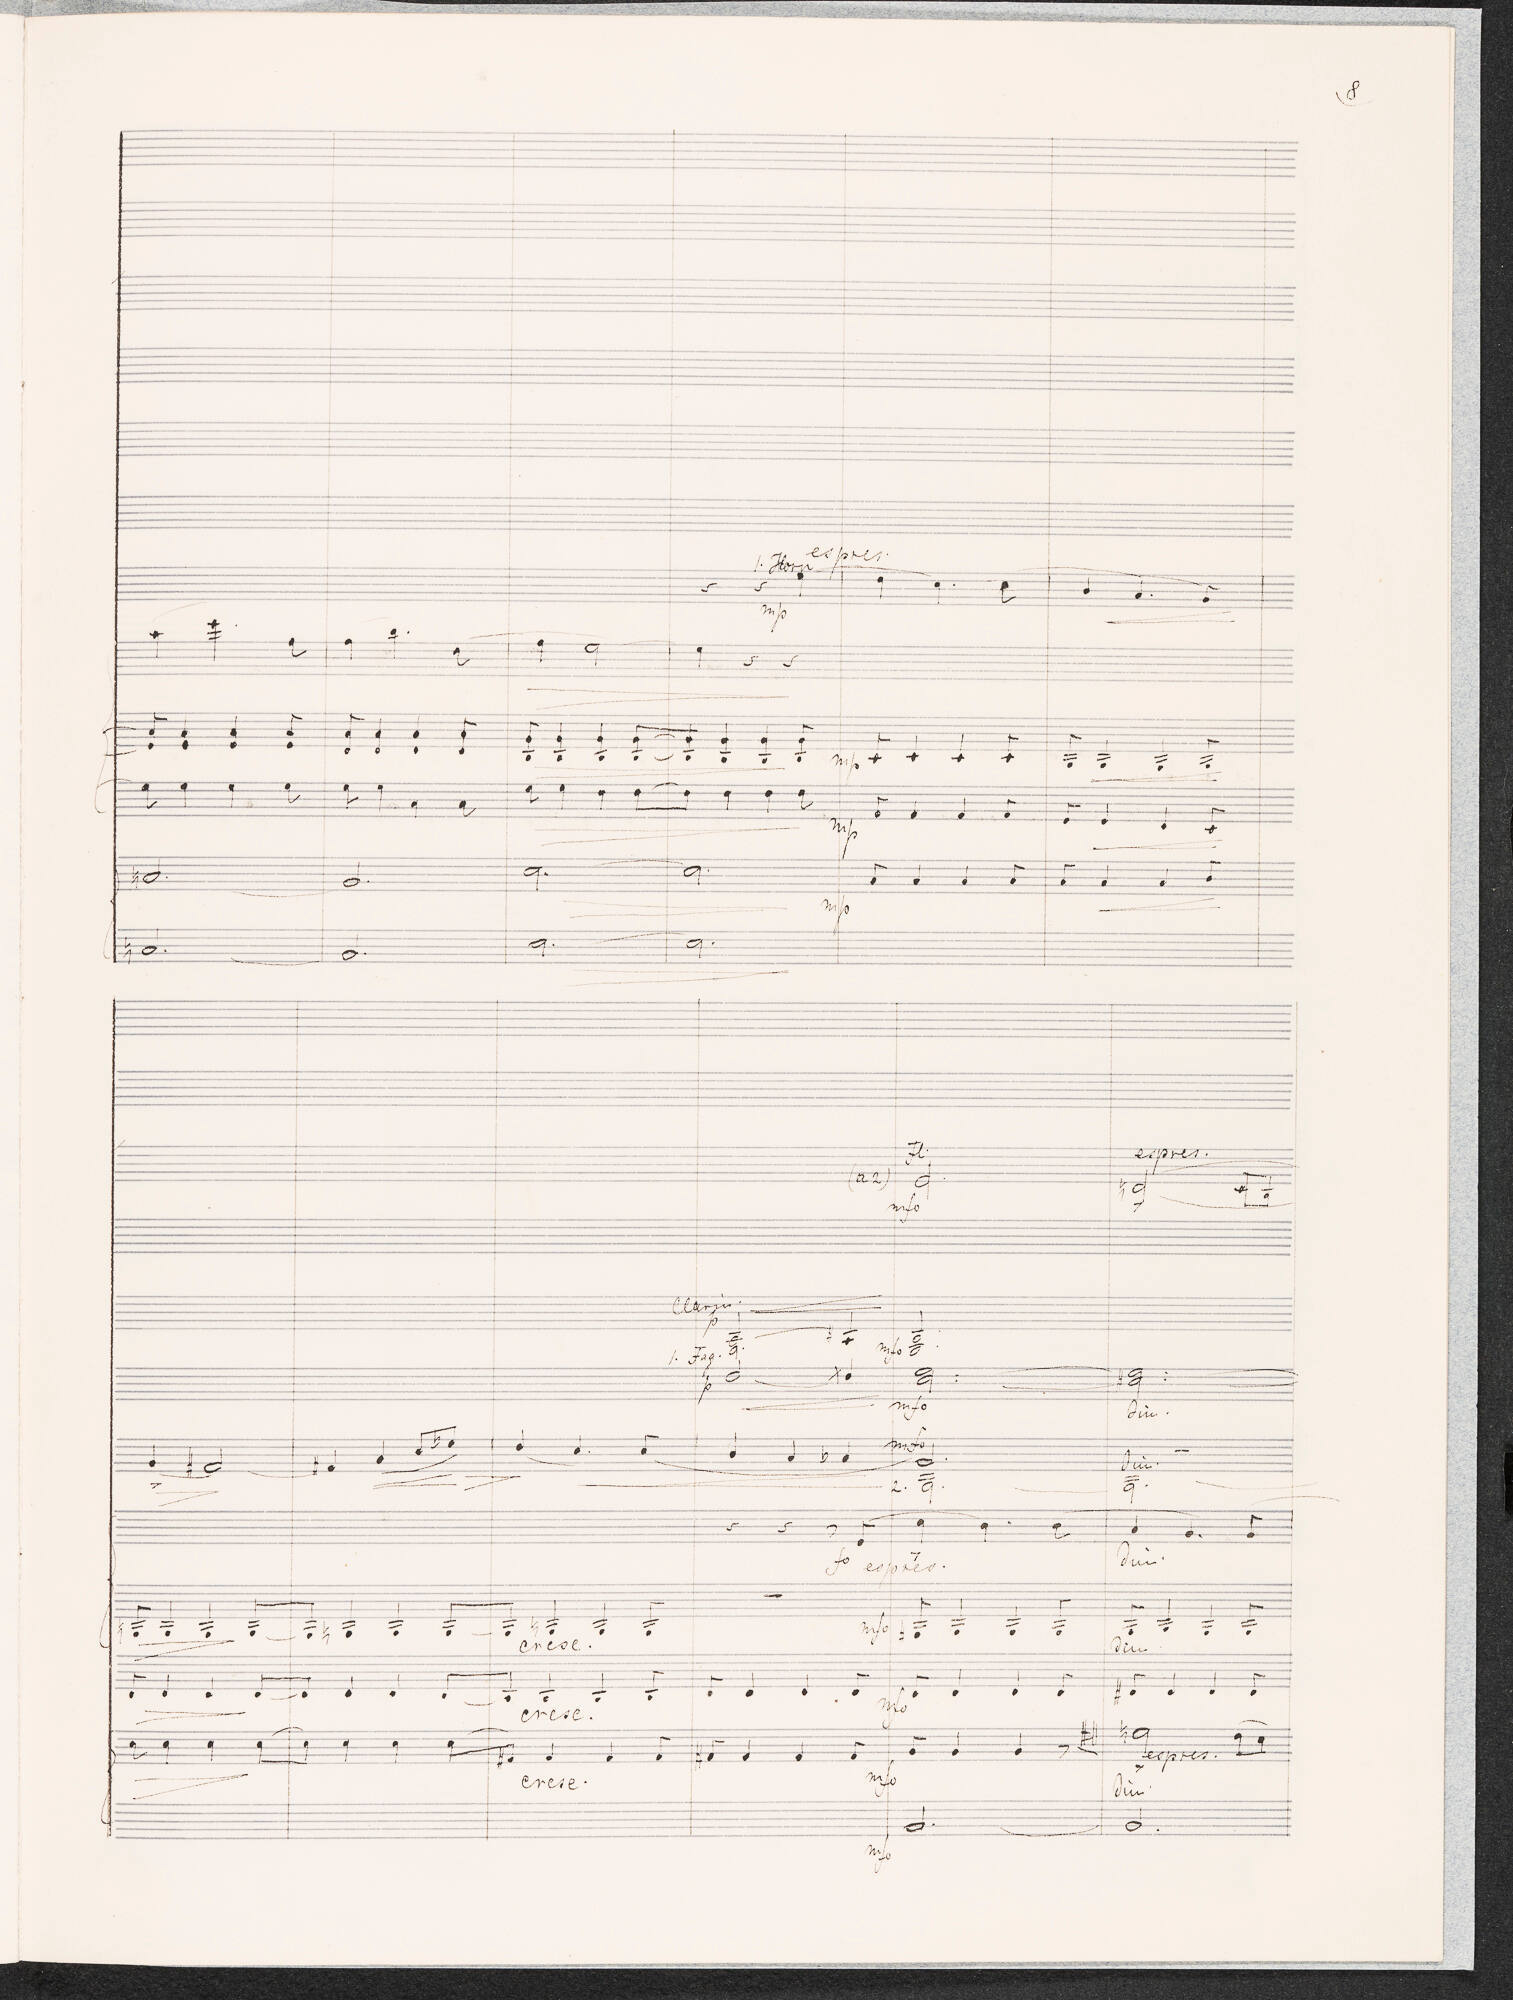 8
1. Horn espres.
mp
mp
mp
mfo
Fl.
(a2)
mfo
espres.
Clarin.
p
1. Fag.
p
mfo
mfo
dim.
mfo
dim.
2.
fo espres.
dim.
cresc.
mfo
dim
cresc.
mfo
cresc.
mfo
espres.
dim.
mfo